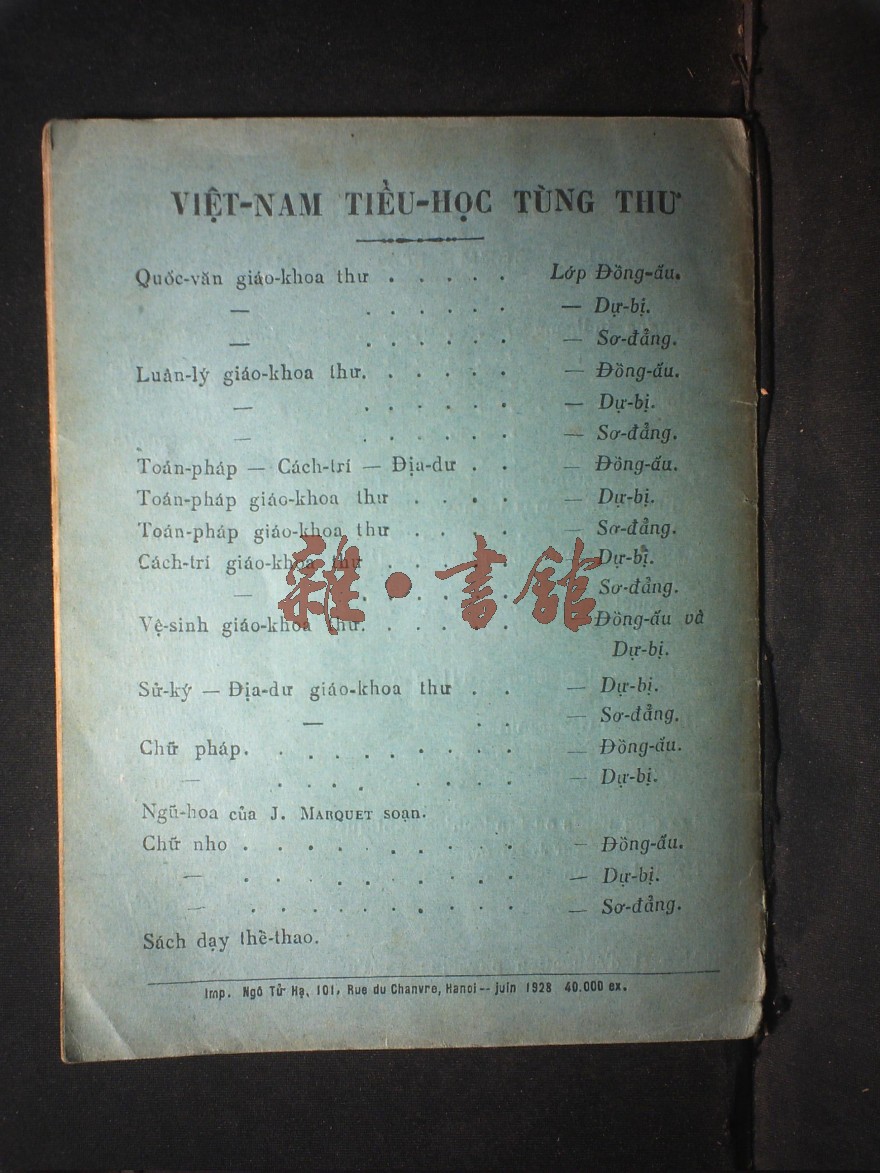 VIỆT-NAM TIỂU-HỌC TÙNG THƯ
Quốc-văn giáo-khoa thư . . . . . Lớp Đồng-ấu.
— . . . . . . — Dự-bị.
— . . . . . . — Sơ-đẳng.
Luân-lý giáo-khoa thư. . . . . . — Đồng-ấu.
— . . . . . . — Dự-bị.
— . . . . . . — Sơ-đẳng.
Toán-pháp — Cách-trí — Địa-dư . . — Đồng-ấu.
Toán-pháp giáo-khoa thư . . . . — Dự-bị.
Toán-pháp giáo-khoa thư . . . . — Sơ-đẳng.
Cách-trí giáo-khoa thư . . . . . — Dự-bị.
— . . . . . . — Sơ-đẳng.
雜•書館
Vệ-sinh giáo-khoa thư. . . . . . Đồng-ấu và
Dự-bị.
Sử-ký — Địa-dư giáo-khoa thư . . — Dự-bị.
— . . — Sơ-đẳng.
Chữ pháp. . . . . . . . . . — Đồng-ấu.
— . . . . . . . . — Dự-bị.
Ngũ-hoa của J. MARQUET soạn.
Chữ nho . . . . . . . . . — Đồng-ấu.
— . . . . . . . . . — Dự-bị.
— . . . . . . . . . — Sơ-đẳng.
Sách dạy thể-thao.
Imp. Ngô Tử Hạ, 101, Rue du Chanvre, Hanoi -- juin 1928 40.000 ex.